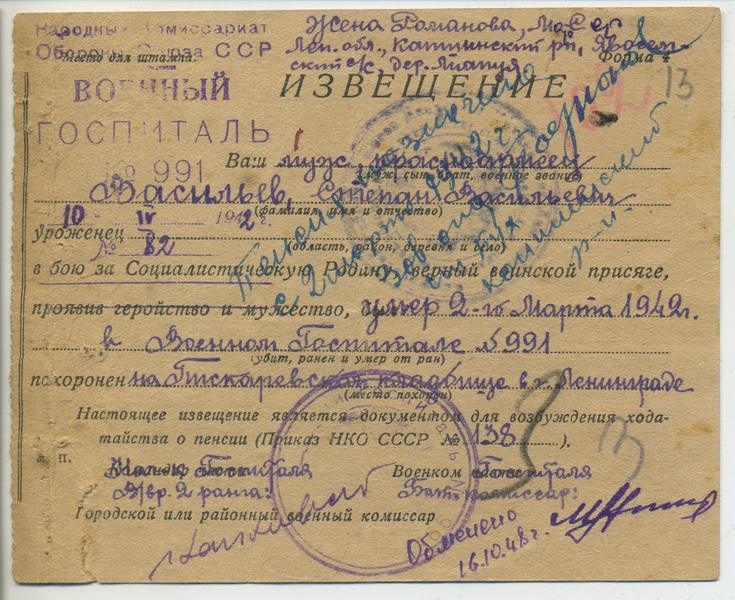 Народный Комиссариат
Обороны Союза ССР
Место для штампа.
ВОЕННЫЙ
ГОСПИТАЛЬ
№ 991
10 IV 1942 г.
№ 82
Жена Романова,
Лен. обл., р-н,
с/с, дер.
Форма 4
13
ИЗВЕЩЕНИЕ
Ваш муж, красноармеец
(муж, сын, брат, военное звание)
Васильев, Степан Васильевич
(фамилия, имя и отчество)
уроженец
(область, район, деревня и село)
в бою за Социалистическую Родину, верный воинской присяге,
проявив геройство и мужество, умер 2-го Марта 1942 г.
в Военном Госпитале № 991
(убит, ранен и умер от ран)
похоронен на Пискаревском кладбище в г. Ленинграде
(место похорон)
Настоящее извещение является документом для возбуждения хода-
тайства о пенсии (Приказ НКО СССР № 138 ).
м. п.
Госпиталя
В/вр. 2 ранга:
Военком Госпиталя
Бат. комиссар:
Городской или районный военный комиссар
Пенсия назначена
с 2 марта 1942 г.
3
3
Обменено
16.10.48 г.